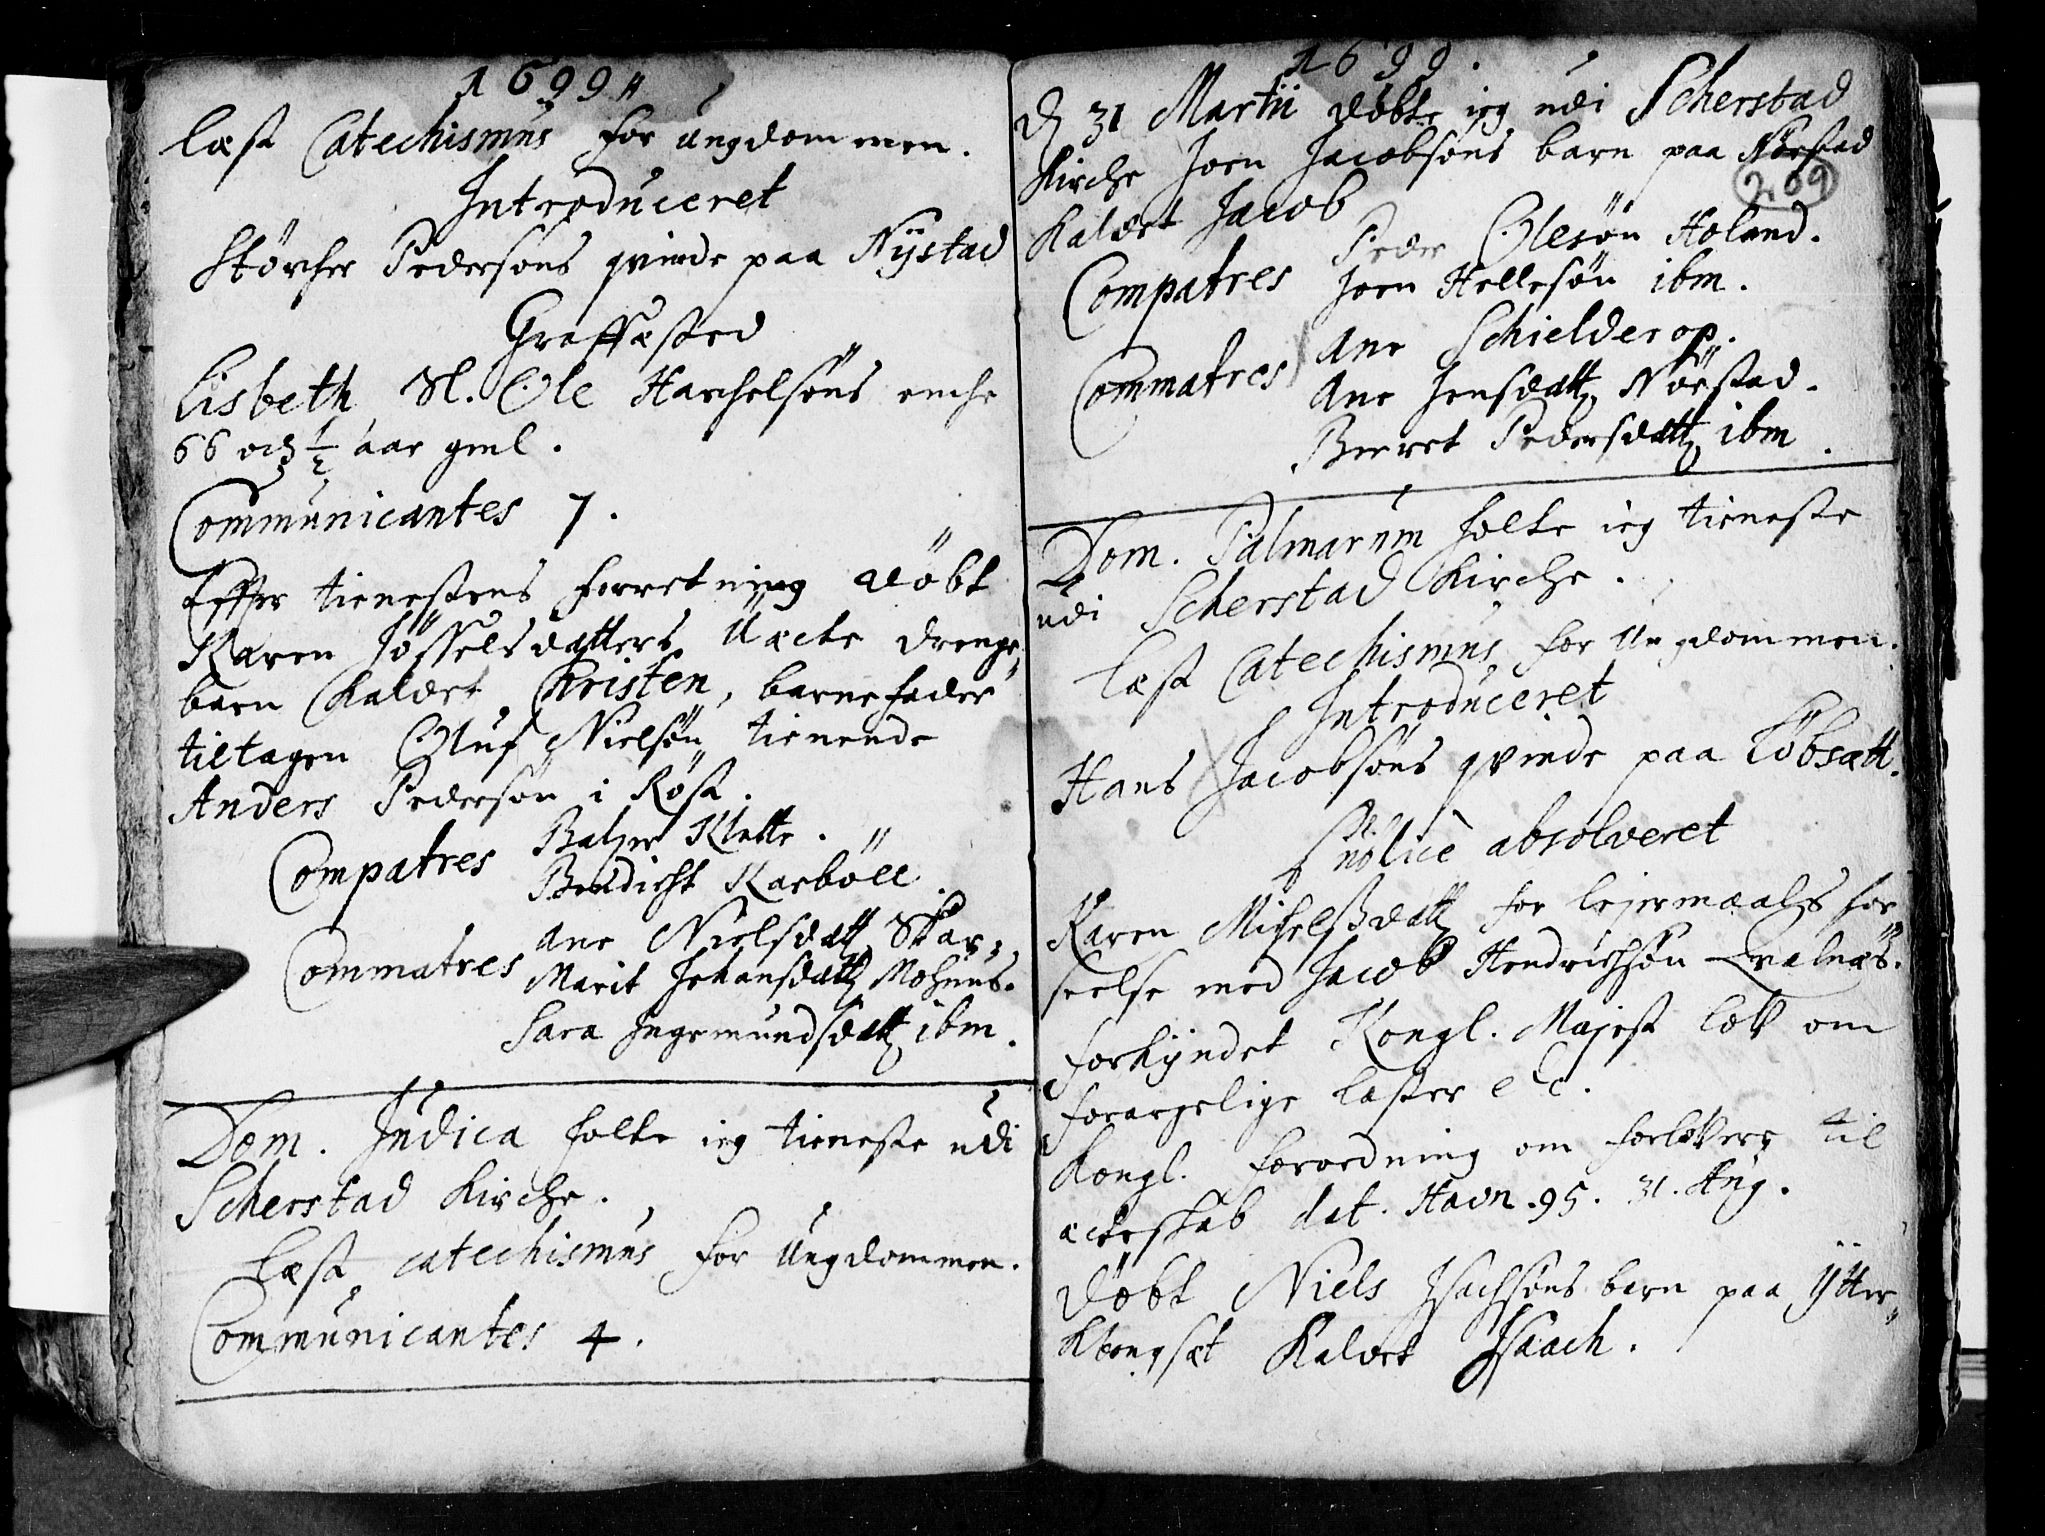 1699
læst Catechismus for ungdommen.
Introduceret
Størcher Pedersøns qvinde paa Nÿstad
Graffæsted
Lisbeth Sl. Ole Harchelsøns enche
66 och ½ aar geml.
Communicantes 7.
Effter tienestens forretning døbt
Karen Jøsselsdatters Uæcte drenge
barn Kaldet Christen, barnefader
tiltagen Oluf Nielsøn tienende
Anders Pedersøn i Røst.
Compatres Balzer Klette.
Bendicht Karbøll.
Commatres Ane Nielsdatt Skar
Marit Johansdatt Mohuus.
Sara Ingemundsdatt ibm.
Dom. Judica holte ieg tieneste udi
Scherstad Kirche.
Læst catechismus for Ungdommen.
Communicantes 4.
1699.
209
D 31 Martii døbte ieg udi Scherstad
Kirche Joen Jacobsøns barn paa Nøestad
Kaldet Jacob
Compatres Peder Olesøn Holand.
Joen Hellesøn ibm.
Commatres Ane Schielderop.
Ane Jensdatt Nöestad.
Berret Pedersdatt ibm.
Dom. Palmarum holte ieg tieneste
udi Scherstad Kirche.
Læst Catechismus for Ungdommen.
Introduceret
Hans Jacobsøns qvinde paa Løbsætt.
Publicè absolveret
Karen Michelsdatt for lejermaals for
seelse med Jacob Hendrichsøn Qvalnæs.
forkÿndet Kongl. Majest lov om
forargelige laster etc.
Kongl. forordning om forlovere til
ecteskab dat. Havn. 95. 31. Aug.
Døbt Niels Isachsøns barn paa Ÿtter
Klengset Kaldet Isaach.